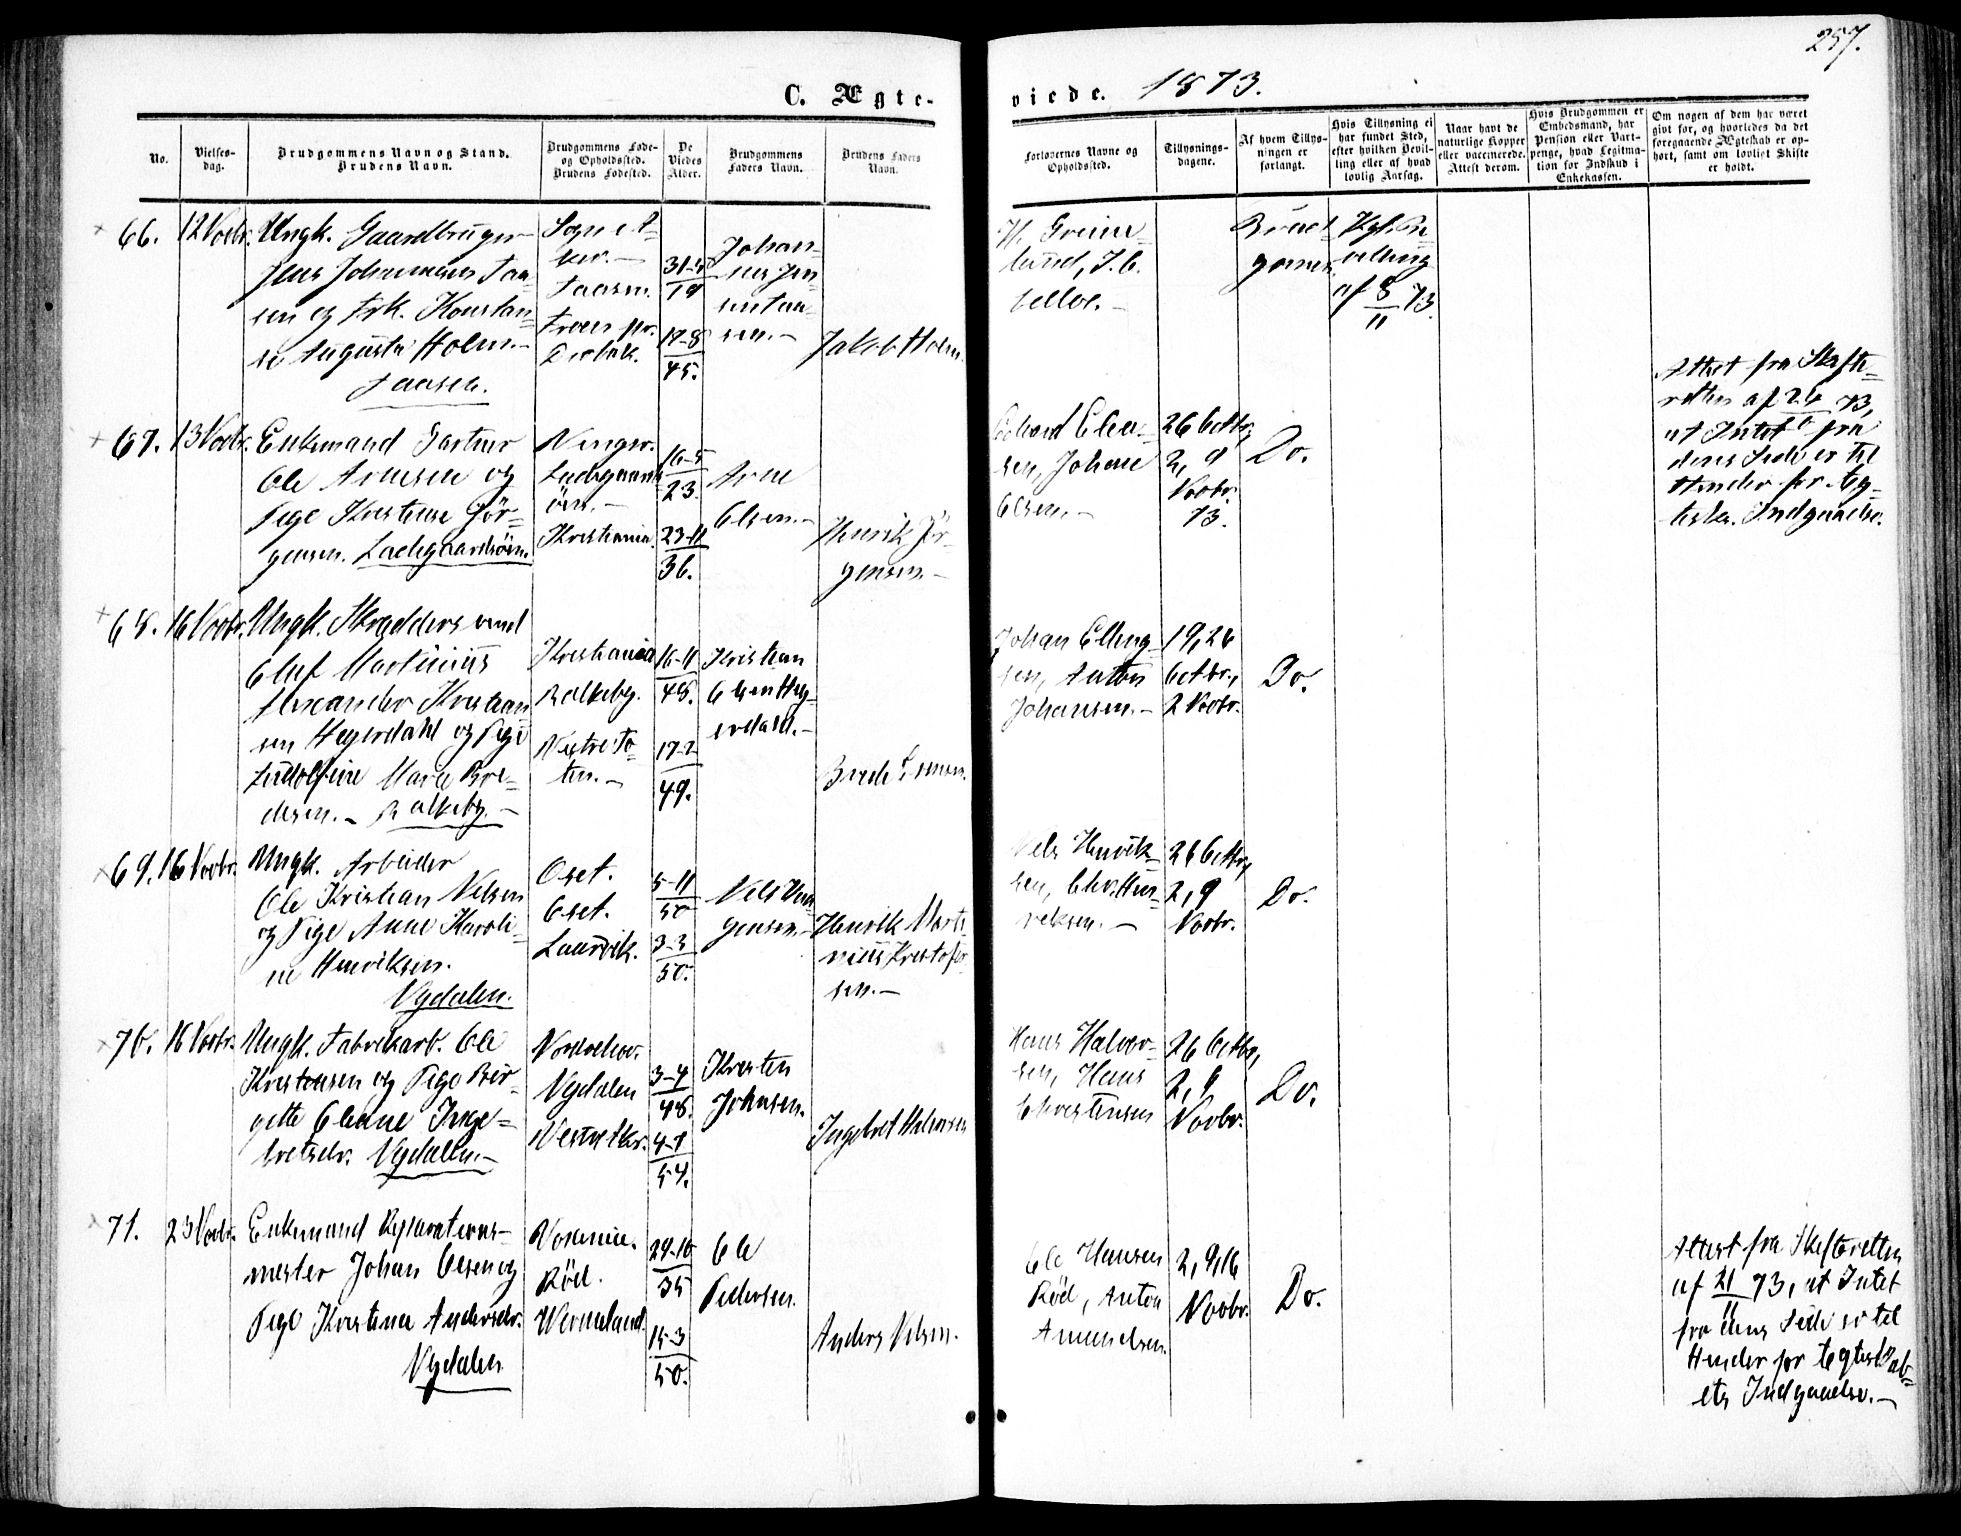 257.
C. Ægte-
viede. 1873.
No.
Vielses-
dag.
Brudgommens Navn og Stand.
Brudens Navn.
Brudgommens Føde-
og Opholdssted.
Brudens Fødested.
De
Viedes
Alder.
Brudgommens
Faders Navn.
Brudens Faders
Navn.
Forlovernes Navne og
Opholdssted.
Tillysnings-
dagene.
Af hvem Tillys-
ningen er
forlangt.
Hvis Tillysning ei
har fundet Sted,
efter hvilken Bevil-
ling eller af hvad
lovlig Aarsag.
Naar havt de
naturlige Kopper
eller vaccinerede.
Attest derom.
Hvis Brudgommen er
Embedsmand, har
Pension eller Vart-
penge, hvad Legitma-
tion for Indskud i
Enkekassen.
Om nogen af dem har været
gift før, og hvorledes da det
foregaaende Ægteskab er op-
hørt, samt om lovligt Skifte
er holdt.
66.
12 Novbr.
Ungk. Gaardbruger
Jens Johannesen Taa-
sen og Frk. Konstan-
se Augusta Holm.-
Taasen.
Taasen.
Drøbak.
31-5
19
17-8
45.
Johan-
nes Jen
sen Taa-
sen.-
Jakob Holm.
H. Grøn-
lund,
Brud-
gommen.
Kgl. Be-
villing
af 8/11 73.
67.
13 Novbr.
Enkemand Gartner
Ole Arnesen og
Pige Kristense Jör-
gensen. Ladegaardsöen.
Ladegaards
öen.-
Kristiania.
16-5
23.
23-11
36.
Arne
Olsen.-
Henrik Jör-
gensen.-
sen, Johan
Olsen.-
26 Octbr,
2, 9
Novbr.
73.
Do.
Attest fra Skifte-
retten af 73,
at Intet fra
dens Side er til
Hinder for Æg-
tesk. Indgaaelse.
68.
16 Novbr.
Ungk. Skræddersvend
Oluf Martinius
Alexander Kristian
sen Hegerdahl og Pige
Ludolfine Marie Bre-
desen.- Balkeby.-
Kristiania
Balkeby.
Vestre To-
ten.-
16-11
48.
17-2
49.
Kristian
Olsen Heg-
erdahl.-
Johan Elling-
sen, Anton
Johansen.-
19, 26
Octbr.,
2 Novbr.
Do.
69.
16 Novbr.
Ungk. Arbeider
Ole Kristian Nelsen
og Pige Anne Karoli-
ne Henriksen.
Nydalen.
Oset.
Oset.
Laurvik.
5-11
50
3-3
50.
gensen.-
Henrik Marti-
nius Kristofer-
sen.-
Nels Henrik-
26 Octbr,
2, 9
Novbr.
Do.
70.
16 Novbr.
Ungk. Fabrikarb. Ole
Kristensen og Pige Bir-
gitte Oleane Inge-
bretsdr. Nydalen.-
Nydalen
3-4
48.
4-1
54.
Kristen
Johnsen.
Ingebret Halvorsen
Hans Halvor-
sen, Hans
Christensen
26 Octbr,
2, 9
Novbr.
Do.
71.
23 Novbr.
Enkemand Reparations-
mester Johan Olsen og
Pige Kristine Andersdr.
Nydalen.
Röd.
Wermeland.
29-10
35
15-3
50.
Ole
Pedersen.
Anders Nilsen.
Ole Hansen
Röd, Anton
Amundsen.
2, 9, 16
Novbr.
Do.
Attest fra Skifteretten
af 21/11 73, at Intet
fra dens Side er til
Hinder for Ægteskab-
ets Indgaaelse.-